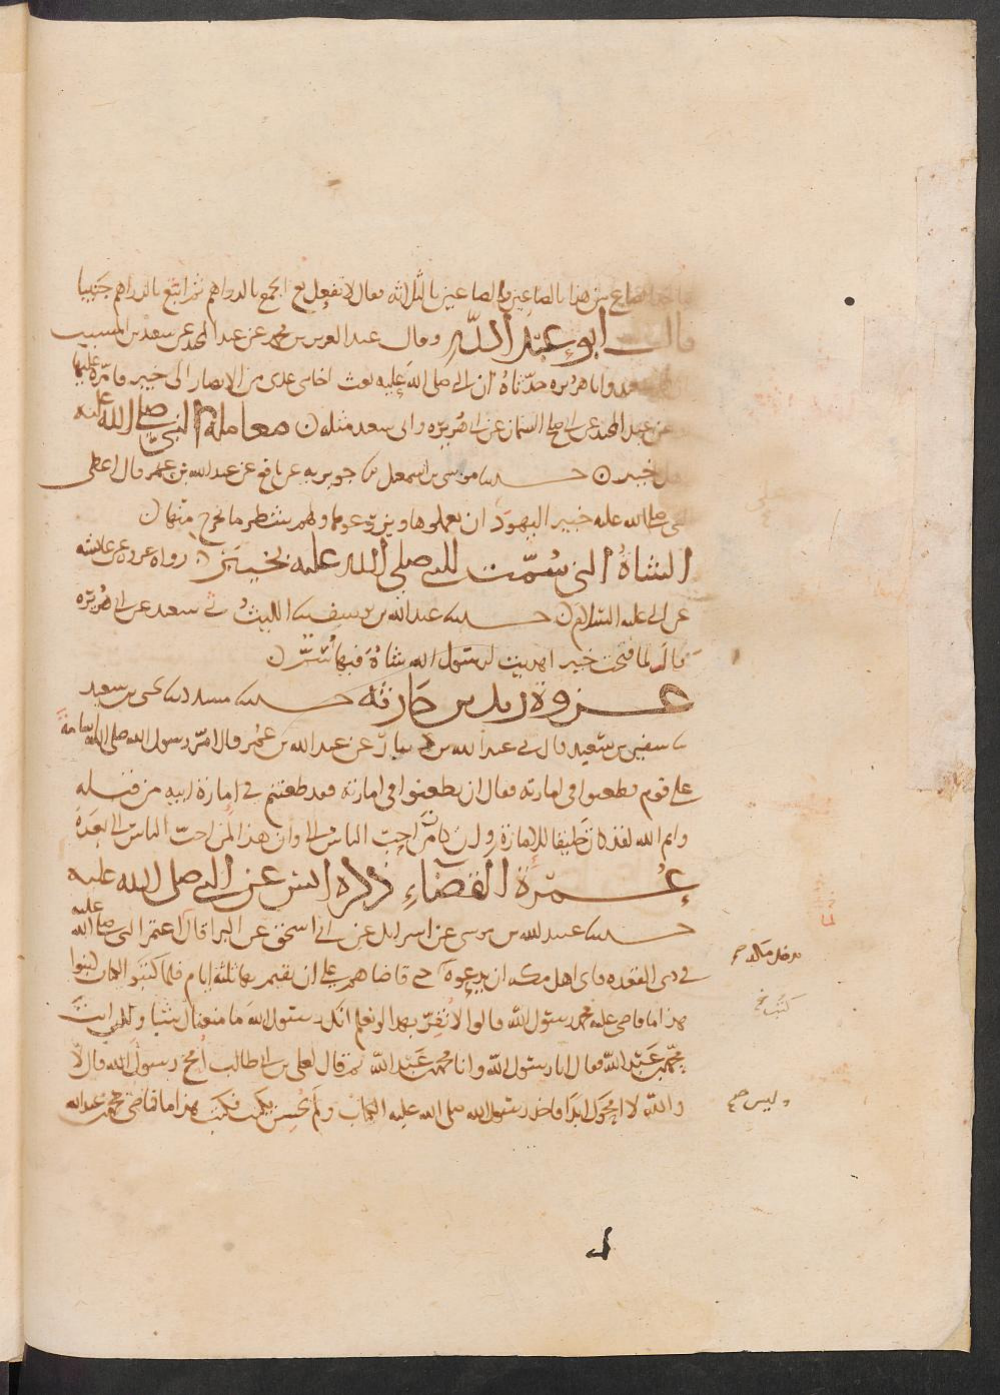 الصاع من هذا بالصاعين والصاعين بالثلاثة فقال لا تفعل بع الجمع بالدراهم ثم ابتع بالدراهم جنيبا
قال ابو عبد الله وقال عبد العزيز بن محمد عن عبد المجيد عن سعيد بن المسيب
وابا هريره حدثاه ان النبي صلى الله عليه بعث اخا بني عدي من الانصار الى خيبر فامره عليها
وعن عبد المجيد عن ابي صالح السمان عن ابي هريره وابي سعيد مثله معاملة النبي صلى الله عليه
اهل خيبر حدثنا موسى بن اسمعيل نا جويريه عن نافع عن عبد الله بن عمر قال اعطى
النبي صلى الله عليه خيبر اليهود ان يعملوها ويزرعوها ولهم شطر ما يخرج منها
الشاة التي سمت للنبي صلى الله عليه بخيبر رواه عروه عن عائشه
عن النبي عليه السلام حدثنا عبد الله بن يوسف نا الليث ني سعيد عن ابي هريره
قال لما فتحت خيبر اهديت لرسول الله شاة فيها سم
غزوة زيد بن حارثه حدثنا مسدد نا يحيى بن سعيد
نا سفين بن سعيد قال ني عبد الله بن دينار عن عبد الله بن عمر قال امر رسول الله صلى الله اسامة
على قوم فطعنوا في امارته فقال ان تطعنوا في امارته فقد طعنتم في امارة ابيه من قبله
وايم الله لقد كان خليقا للامارة وان كان من احب الناس الي وان هذا لمن احب الناس الي بعده
عمرة القضاء ذكره انس عن النبي صلى الله عليه
حدثنا عبيد الله بن موسى عن اسرائيل عن ابي اسحق عن البرا قال اعتمر النبي صلى الله عليه
في ذي القعده فابى اهل مكه ان يدعوه حتى قاضاهم على ان يقيم بها ثلثه ايام فلما كتبوا الكتاب كتبوا
هذا ما قاضى عليه محمد رسول الله قالوا لا نقر بهذا لو نعلم انك رسول الله ما منعناك شيئا ولكن انت
محمد بن عبد الله فقال انا رسول الله وانا محمد بن عبد الله ثم قال لعلي بن ابي طالب امح رسول الله قال لا
والله لا امحوك ابدا فاخذ رسول الله صلى الله عليه الكتاب ولم يحسن يكتب فكتب هذا ما قاضى محمد بن عبد الله
يدخل مكه صح
كتب خ
وليس صح